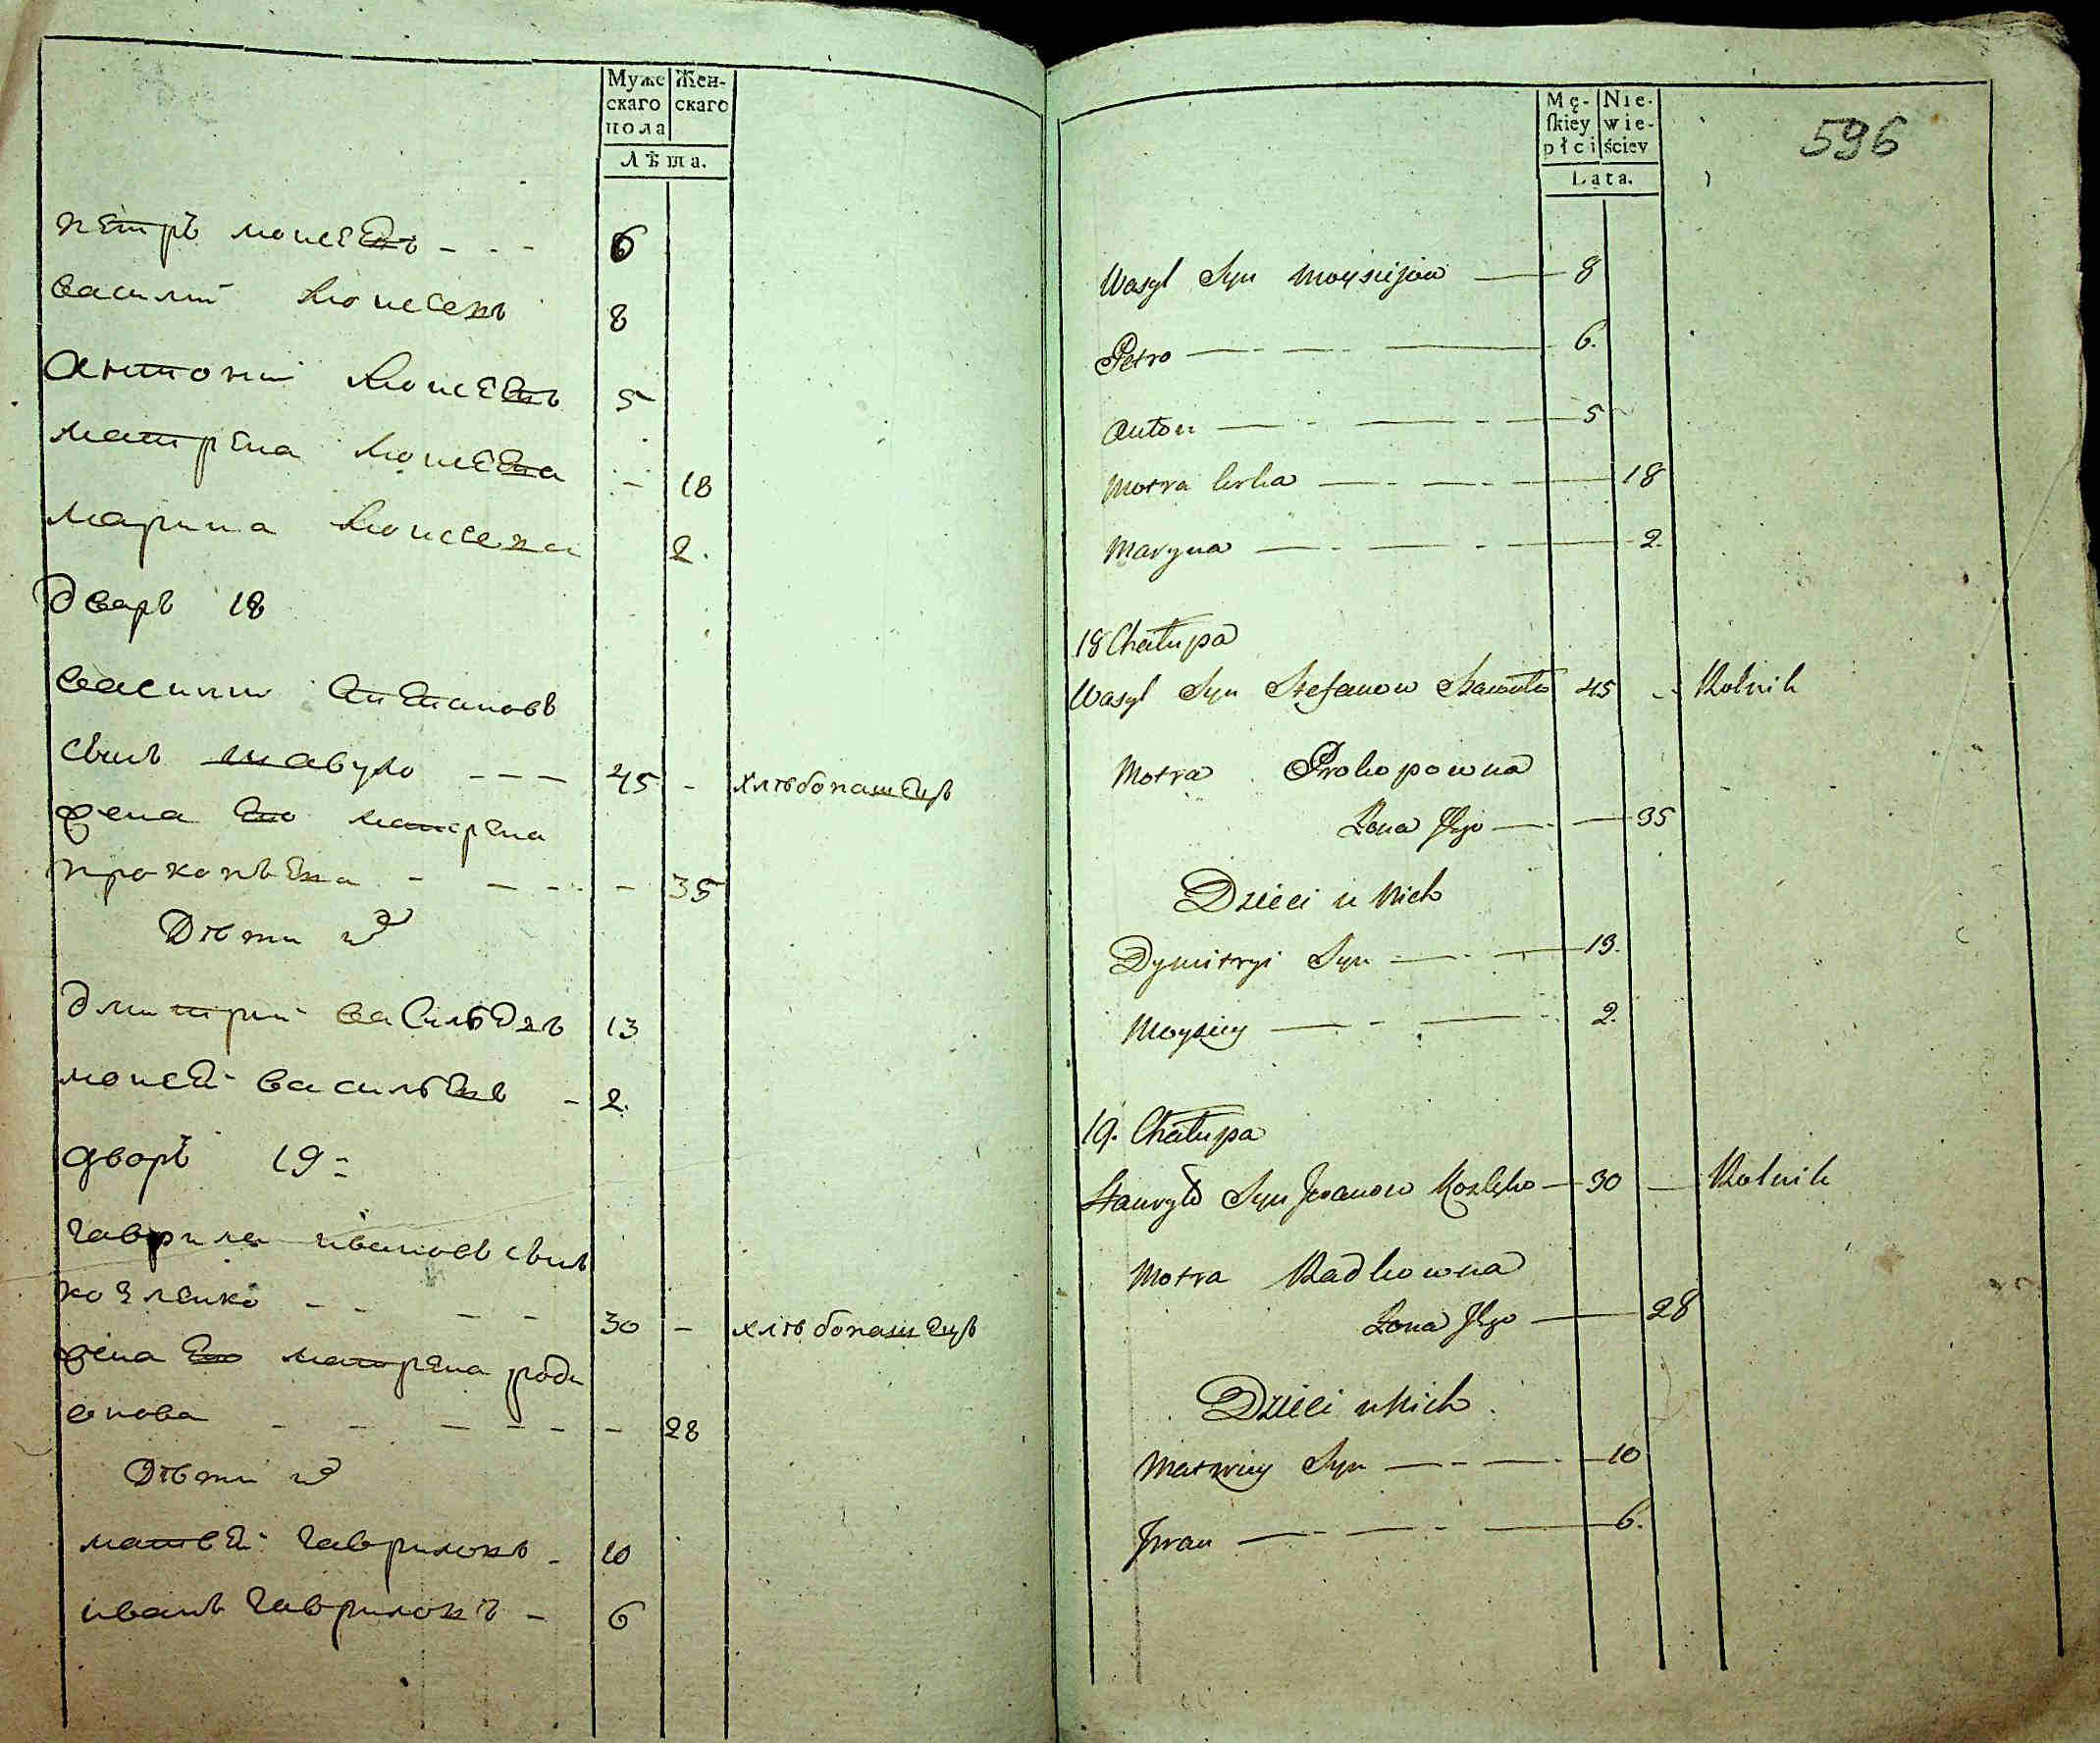 Муже Жен-
скаго скаго
пола
Лѣта.
петръ моисеевъ - - - 6
василий Моисеевъ 8
Антоний Моисеевъ 5
матрена Моисеева - 18
марина Моисеева 2.
Дворъ 18
василий Степановъ
сынъ шавуло - - - 45 - хлѣбопашецъ
жена его матрена
прокопьева - - - - - 35
Дѣти их
дмитрий васильевъ 13
моисей васильевъ - 2.
дворъ 19
гаврила ивановъ сынъ
козленко - - - - 30 - хлѣбопашецъ
жена его матрена роди
онова - - - - - - 28
Дѣти их
матвей гавриловъ - 10
иванъ гавриловъ - 6
Mę- Nie-
ſkiey wie-
płci ściey
Lata.
596
Wasyl Syn Moysiejow — 8
Petro — — — 6.
Anton — - — - — 5
Motra Corka — - — - — 18
Maryna — - - — 2
18 Chałupa
Wasyl Syn Stefanow Szawuło 45 - Rolnik
Motra Prokopowna
Żona Jego — - — 35
Dzieci u Nich
Dymitryi Syn — - — 13.
Moysiey — - — - 2.
19. Chałupa
Hawryło Syn Iwanow Kozłęko — 30 — Rolnik
Motra Radkowna
Żona Jego — 28
Dzieci u Nich
Matwiey Syn — - — - — 10
Iwan — - — - — 6.